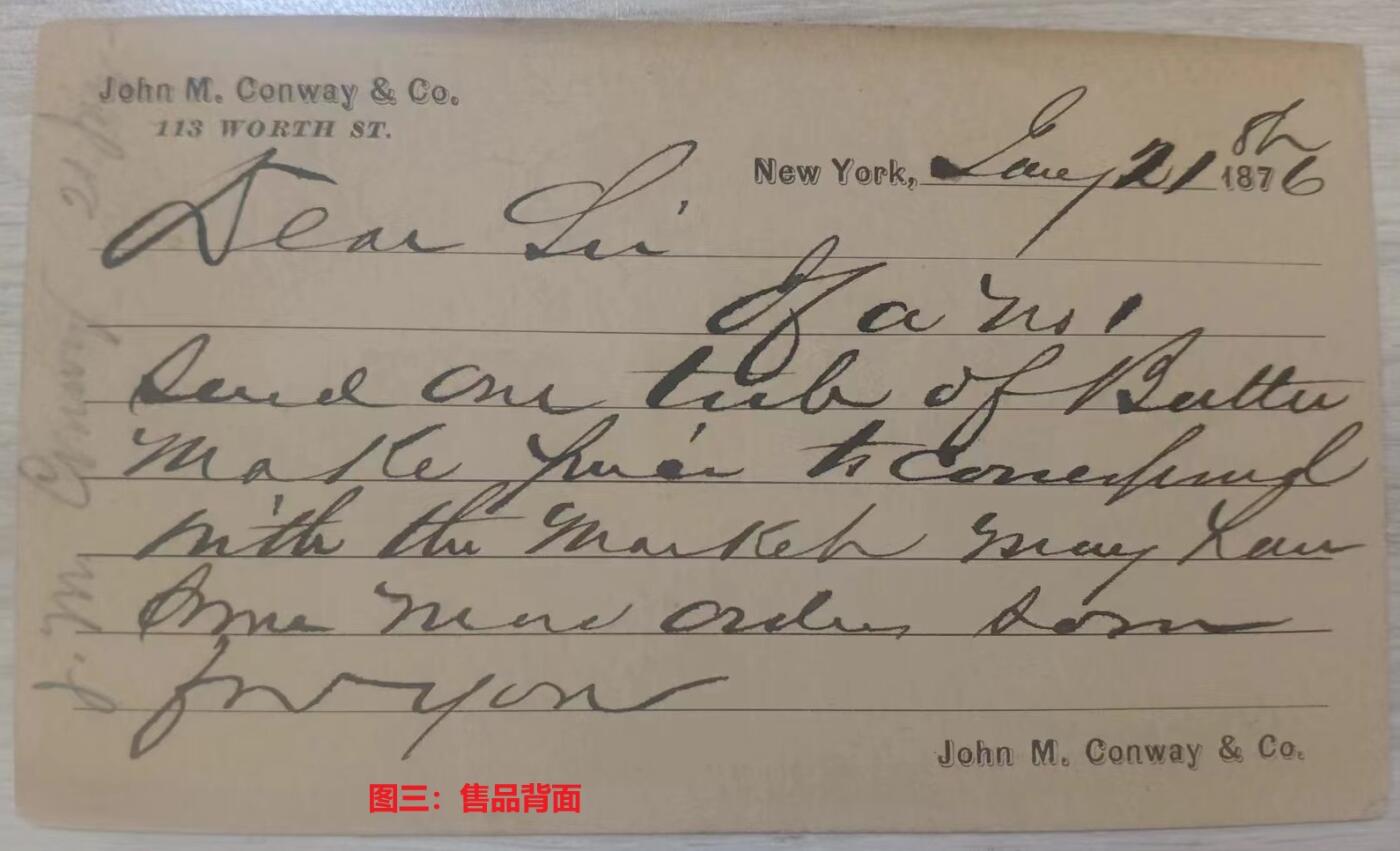 John M. Conway & Co.
113 WORTH ST.
New York, Jany 21 8th 1876
Dear Sir
If a No 1
send one tub of Butter
Make price to correspond
with the Market may have
some more orders soon
for you
John M. Conway & Co.
J. M. Conway 21 Jany
图三：售品背面